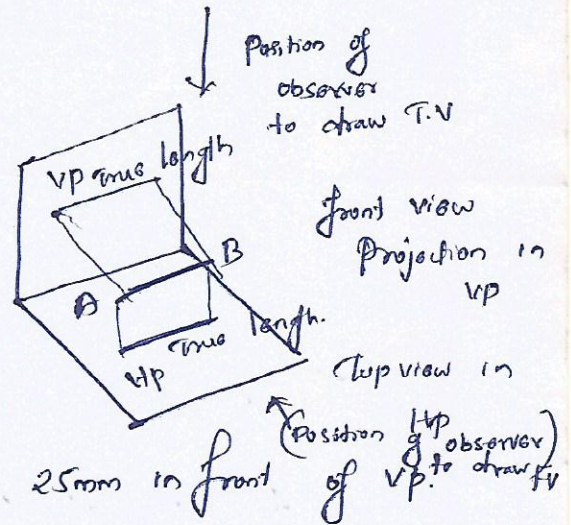 Position of
observer
to draw T.V
VP True length
front view
Projection in
VP
B
A
True length.
HP
Top view in
HP
(Position of observer
to draw FV)
25mm in front of VP.